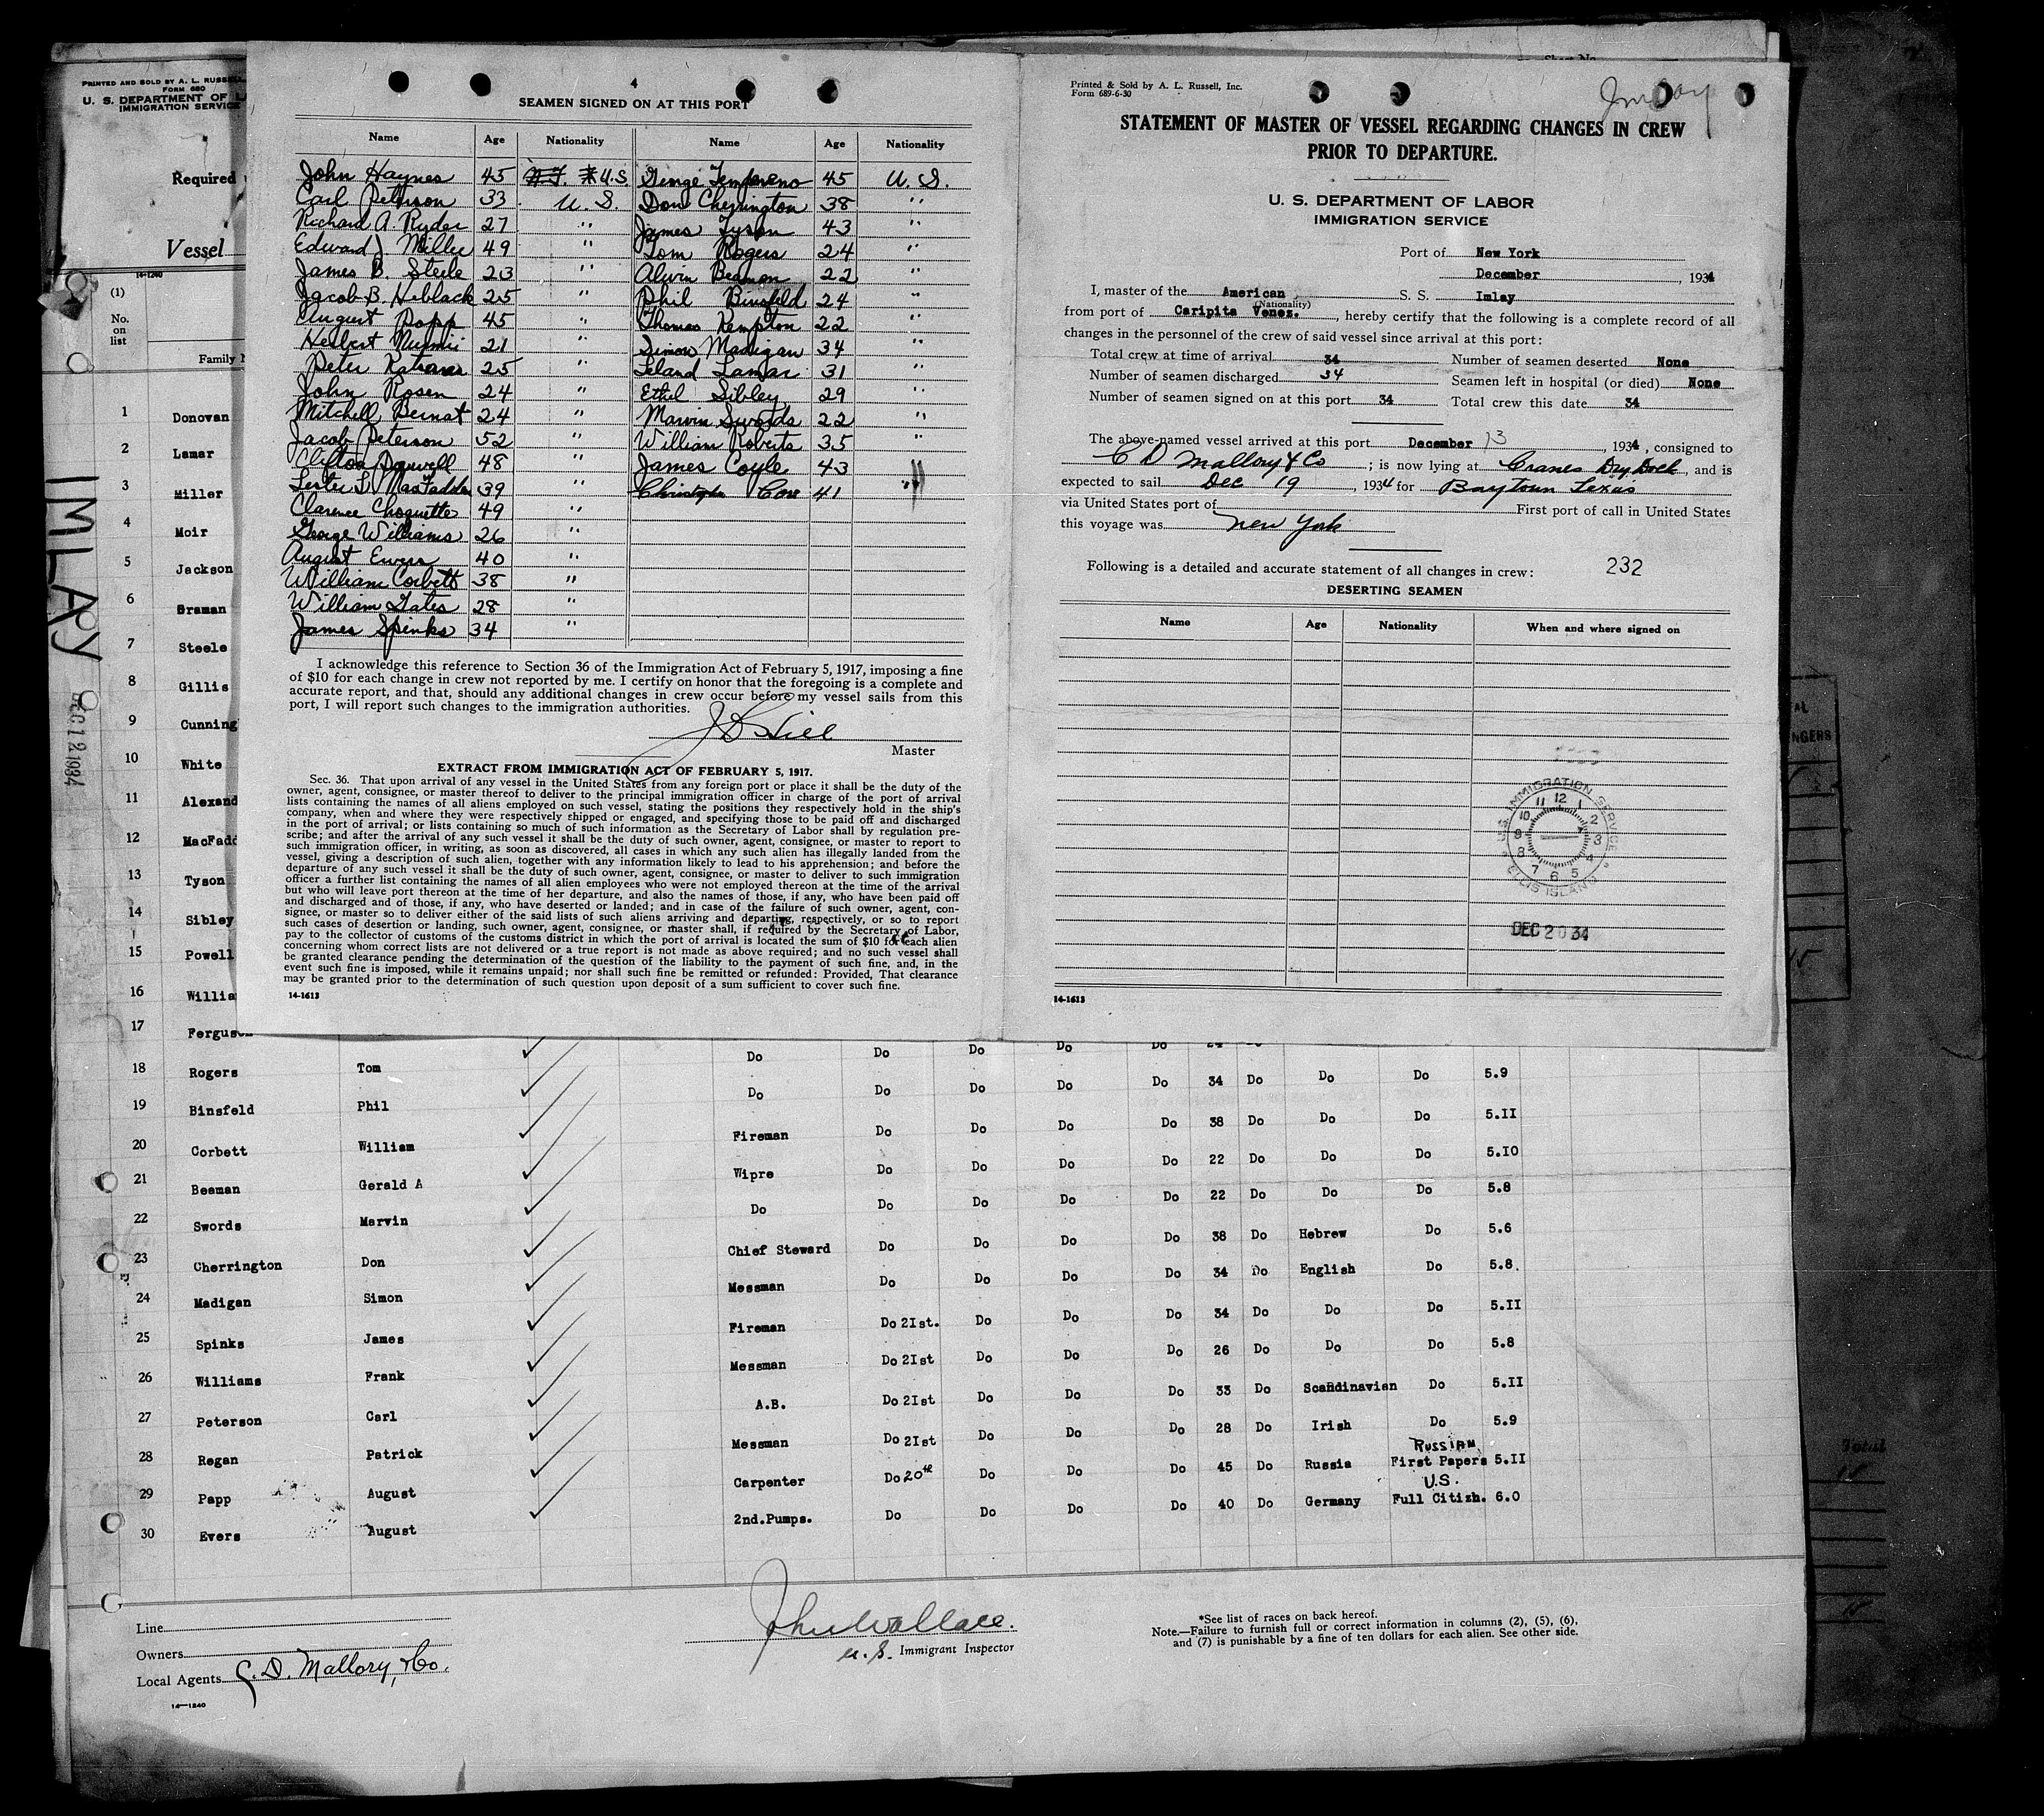 PRINTED AND SOLD BY A. L. RUSSELL
FORM 680
U. S. DEPARTMENT OF LA
IMMIGRATION SERVICE
Required
Vessel
14-1240
(1)
No.
on
list
Family N
IMLAY
DEC 12 1934
4
SEAMEN SIGNED ON AT THIS PORT
Name Age Nationality Name Age Nationality
John Haynes 45 U.S. George 45 U. S.
Carl Petterson 33 U. S. Don Cherrington 38 "
Richard A. Ryder 27 " James Tyson 43 "
Edward J Miller 49 " Tom Rogers 24 "
James B. Steele 23 " Alvin Beamon 22 "
Jacob B. Heblack 25 " Phil Binsfeld 24 "
August Popp 45 " Thomas Kempton 22 "
Herbert 21 " Simon Madigan 34 "
Peter 25 " Leland Lamar 31 "
John Rosen 24 " Ethel Sibley 29 "
Mitchell Bernat 24 " Marvin Swords 22 "
Jacob Peterson 52 " William Roberts 35 "
Clifton 48 " James Coyle 43 "
Lester L. MacFadden 39 " Christopher 41 "
Clarence Choquette 49 "
George Williams 26 "
August Evers 40 "
William Corbett 38 "
William Gates 28 "
James Spinks 34 "
I acknowledge this reference to Section 36 of the Immigration Act of February 5, 1917, imposing a fine
of $10 for each change in crew not reported by me. I certify on honor that the foregoing is a complete and
accurate report, and that, should any additional changes in crew occur before my vessel sails from this
port, I will report such changes to the immigration authorities.
Master
EXTRACT FROM IMMIGRATION ACT OF FEBRUARY 5, 1917.
Sec. 36. That upon arrival of any vessel in the United States from any foreign port or place it shall be the duty of the
owner, agent, consignee, or master thereof to deliver to the principal immigration officer in charge of the port of arrival
lists containing the names of all aliens employed on such vessel, stating the positions they respectively hold in the ship's
company, when and where they were respectively shipped or engaged, and specifying those to be paid off and discharged
in the port of arrival; or lists containing so much of such information as the Secretary of Labor shall by regulation pre-
scribe; and after the arrival of any such vessel it shall be the duty of such owner, agent, consignee, or master to report to
such immigration officer, in writing, as soon as discovered, all cases in which any such alien has illegally landed from the
vessel, giving a description of such alien, together with any information likely to lead to his apprehension; and before the
departure of any such vessel it shall be the duty of such owner, agent, consignee, or master to deliver to such immigration
officer a further list containing the names of all alien employees who were not employed thereon at the time of the arrival
but who will leave port thereon at the time of her departure, and also the names of those, if any, who have been paid off
and discharged and of those, if any, who have deserted or landed; and in case of the failure of such owner, agent, con-
signee, or master so to deliver either of the said lists of such aliens arriving and departing, respectively, or so to report
such cases of desertion or landing, such owner, agent, consignee, or master shall, if required by the Secretary of Labor,
pay to the collector of customs of the customs district in which the port of arrival is located the sum of $10 for each alien
concerning whom correct lists are not delivered or a true report is not made as above required; and no such vessel shall
be granted clearance pending the determination of the question of the liability to the payment of such fine, and, in the
event such fine is imposed, while it remains unpaid; nor shall such fine be remitted or refunded: Provided, That clearance
may be granted prior to the determination of such question upon deposit of a sum sufficient to cover such fine.
14-1613
Printed & Sold by A. L. Russell, Inc.
Form 689-6-30
STATEMENT OF MASTER OF VESSEL REGARDING CHANGES IN CREW
PRIOR TO DEPARTURE.
U. S. DEPARTMENT OF LABOR
IMMIGRATION SERVICE
Port of New York
December , 1934
I, master of the American S. S. Imlay
(Nationality)
from port of Caripita Venez. , hereby certify that the following is a complete record of all
changes in the personnel of the crew of said vessel since arrival at this port:
Total crew at time of arrival 34 Number of seamen deserted None
Number of seamen discharged 34 Seamen left in hospital (or died) None
Number of seamen signed on at this port 34 Total crew this date 34
The above-named vessel arrived at this port December 13 , 1934 , consigned to
C D Mallory & Co ; is now lying at Cranes Dry Dock , and is
expected to sail Dec 19 , 1934 for Baytown Texas
via United States port of First port of call in United States
this voyage was New York
Following is a detailed and accurate statement of all changes in crew: 232
DESERTING SEAMEN
Name Age Nationality When and where signed on
U.S. IMMIGRATION SERVICE
ELLIS ISLAND
12 1 2 3 4 5 6 7 8 9 10 11
DEC 20 34
14-1613
1 Donovan
2 Lamar
3 Miller
4 Moir
5 Jackson
6 Braman
7 Steele
8 Gillis
9 Cunning
10 White
11 Alexand
12 MacFadd
13 Tyson
14 Sibley
15 Powell
16 Willia
17 Ferguson Do Do Do Do Do 24 Do
18 Rogers Tom Do Do Do Do Do 34 Do Do Do 5.9
19 Binsfeld Phil Fireman Do Do Do Do 38 Do Do Do 5.II
20 Corbett William Wipre Do Do Do Do 22 Do Do Do 5.IO
21 Beeman Gerald A Do Do Do Do Do 22 Do Do Do 5.8
22 Swords Marvin Chief Steward Do Do Do Do 38 Do Hebrew Do 5.6
23 Cherrington Don Messman Do Do Do Do 34 Do English Do 5.8.
24 Madigan Simon Fireman Do 2Ist. Do Do Do 34 Do Do Do 5.II
25 Spinks James Messman Do 2Ist Do Do Do 26 Do Do Do 5.8
26 Williams Frank A.B. Do 2Ist Do Do Do 33 Do Scandinavian Do 5.II
27 Peterson Carl Messman Do 2Ist Do Do Do 28 Do Irish Do 5.9
28 Regan Patrick Carpenter Do 20th Do Do Do 45 Do Russia RUSSIAN First Papers 5.II
29 Papp August 2nd.Pumps. Do Do Do Do 40 Do Germany U.S. Full Citizn. 6.0
30 Evers August
Line
Owners
Local Agents C. D. Mallory, & Co.
14-1240
John Wallace.
U. S. Immigrant Inspector
*See list of races on back hereof.
Note.—Failure to furnish full or correct information in columns (2), (5), (6),
and (7) is punishable by a fine of ten dollars for each alien. See other side.
NGERS
Total